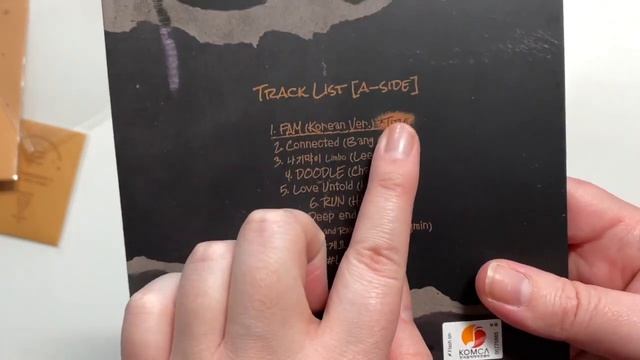 TRACK LIST [A-SIDE]
1. FAM (Korean Ver.)
2. Connected (Bang
3. 나지막이 Limbo (Lee
4. DOODLE (Ch
5. Love Untold (
6. RUN (H
Deep end
and Ra min)
게요
#L
KOMCA